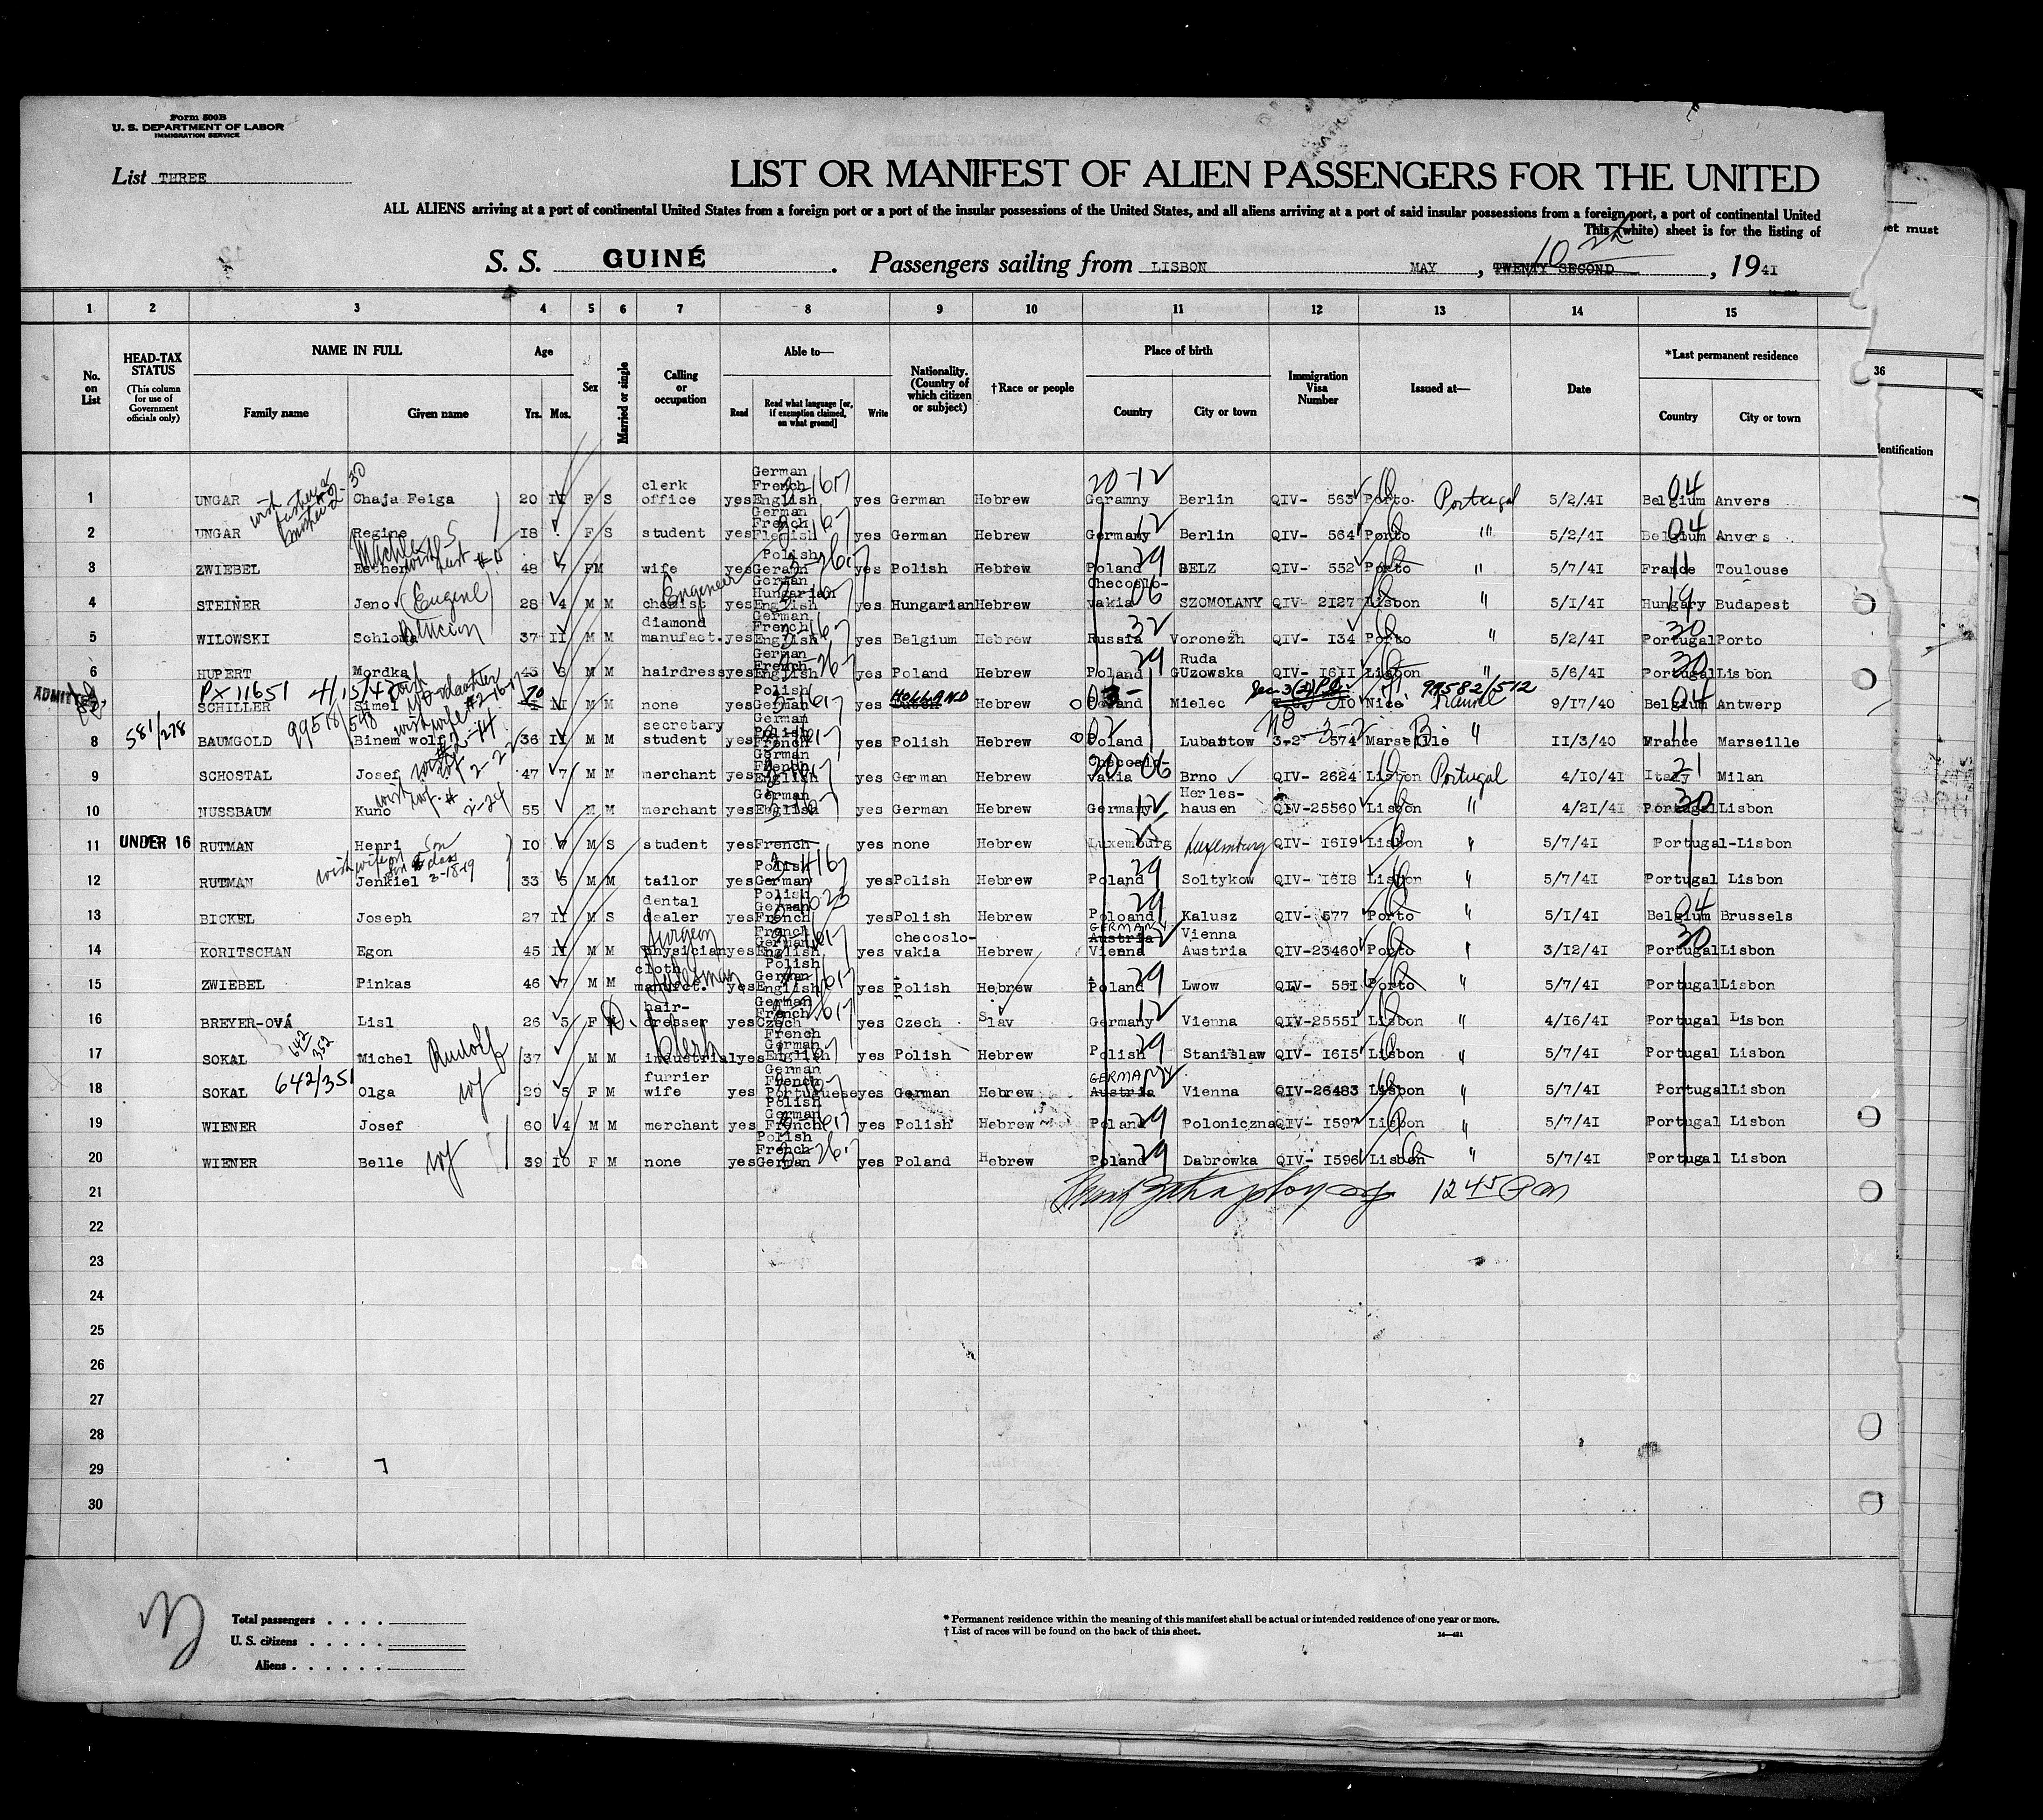 Form 500B
U. S. DEPARTMENT OF LABOR
IMMIGRATION SERVICE
List THREE
LIST OR MANIFEST OF ALIEN PASSENGERS FOR THE UNITED
ALL ALIENS arriving at a port of continental United States from a foreign port or a port of the insular possessions of the United States, and all aliens arriving at a port of said insular possessions from a foreign port, a port of continental United
This (white) sheet is for the listing of
et must
S. S. GUINÉ. Passengers sailing from LISBON MAY, TWENTY SECOND 10th, 1941
1 2 3 4 5 6 7 8 9 10 11 12 13 14 15
36
No. on List
HEAD-TAX STATUS (This column for use of Government officials only)
NAME IN FULL Family name Given name
Age Yrs. Mos.
Sex
Married or single
Calling or occupation
Able to— Read Read what language [or, if exemption claimed, on what ground] Write
Nationality. (Country of which citizen or subject)
†Race or people
Place of birth Country City or town
Immigration Visa Number
Issued at—
Date
*Last permanent residence Country City or town
dentification
1 UNGAR Chaja Feiga 20 II F S clerk office yes German French English yes German Hebrew Geramny Berlin QIV- 563 Porto Portugal 5/2/41 Belgium Anvers
2 UNGAR Regine 18 F S student yes German French yes German Hebrew Germany Berlin QIV- 564 Porto " 5/2/41 Belgium Anvers
3 ZWIEBEL Esther 48 7 FM wife yes Polish Geramn yes Polish Hebrew Poland BELZ QIV- 552 Porto " 5/7/41 France Toulouse
4 STEINER Jeno (Eugene) 28 4 M M chemist Engineer yes German Hungarian English yes Hungarian Hebrew Checoslo-vakia 06 SZOMOLANY QIV- 2127 Lisbon " 5/1/41 Hungary Budapest
5 WILOWSKI Schloma 37 II M M diamond manufact. yes German French English yes Belgium Hebrew Russia 32 Voronezh QIV- I34 Porto " 5/2/41 Portugal Porto
6 HUPERT Mordka 43 8 M M hairdress yes German French English yes Poland Hebrew Poland 29 Ruda GUzowska QIV- I6II Lisbon " 5/6/41 Portugal Lisbon
ADMITTED PX 11651 4/15/47
7 SCHILLER Simel 70 II M M none yes Polish German yes HOLLAND Hebrew Poland Mielec 310 Nice France 99582/512 9/17/40 Belgium Antwerp
8 581/278 BAUMGOLD 99518/548 Binem wolf 36 II M M secretary student yes German Polish French yes Polish Hebrew Poland Lubartow 3-2- 574 Marseille " II/3/40 France Marseille
9 SCHOSTAL Josef 47 7 M M merchant yes German French English yes German Hebrew Checoslo-vakia 06 Brno QIV- 2624 Lisbon Portugal 4/10/41 Italy Milan
10 NUSSBAUM Kuno 55 M M merchant yes German English yes German Hebrew Germany 12 Herles-hausen QIV-25560 Lisbon " 4/21/41 Portugal Lisbon
11 UNDER 16 RUTMAN Henri Son I0 7 M S student yes French yes none Hebrew Luxemburg Luxemburg QIV- I6I9 Lisbon " 5/7/41 Portugal-Lisbon
12 RUTMAN Jenkiel 33 5 M M tailor yes Polish German yes Polish Hebrew Poland 29 Soltykow QIV- I6I8 Lisbon " 5/7/41 Portugal Lisbon
13 BICKEL Joseph 27 II M S dental dealer yes Polish German French yes Polish Hebrew Poloand 29 Kalusz QIV- 577 Porto " 5/1/41 Belgium Brussels
14 KORITSCHAN Egon 45 II M M physician Surgeon yes French German English yes checoslo-vakia Hebrew GERMANY Austria Vienna Vienna Austria QIV-23460 Porto " 3/12/41 Portugal Lisbon
15 ZWIEBEL Pinkas 46 7 M M cloth manufct. Salesman yes Polish German English yes Polish Hebrew Poland 29 Lwow QIV- 55I Porto " 5/7/41 Portugal Lisbon
16 BREYER-OVÁ Lisl 26 5 F D. hair-dresser yes German French Czech yes Czech Slav Germany 12 Vienna QIV-2555I Lisbon " 4/16/41 Portugal Lisbon
17 SOKAL 642/352 Michel Rudolf 37 M M industrial Clerk yes French German English yes Polish Hebrew Polish 29 Stanislaw QIV- I6I5 Lisbon " 5/7/41 Portugal Lisbon
18 SOKAL 642/351 Olga wf 29 5 F M furrier wife yes German French Portuguese yes German Hebrew GERMANY Austria Vienna QIV-26483 Lisbon " 5/7/41 Portugal Lisbon
19 WIENER Josef 60 4 M M merchant yes Polish German French yes Polish Hebrew Poland 29 Poloniczna QIV- I597 Lisbon " 5/7/41 Portugal Lisbon
20 WIENER Belle wf 39 10 F M none yes Polish French German yes Poland Hebrew Poland 29 Dabrowka QIV- I596 Lisbon " 5/7/41 Portugal Lisbon
21 12 45 PM
22
23
24
25
26
27
28
29
30
Total passengers
U. S. citizens
Aliens
* Permanent residence within the meaning of this manifest shall be actual or intended residence of one year or more.
† List of races will be found on the back of this sheet.